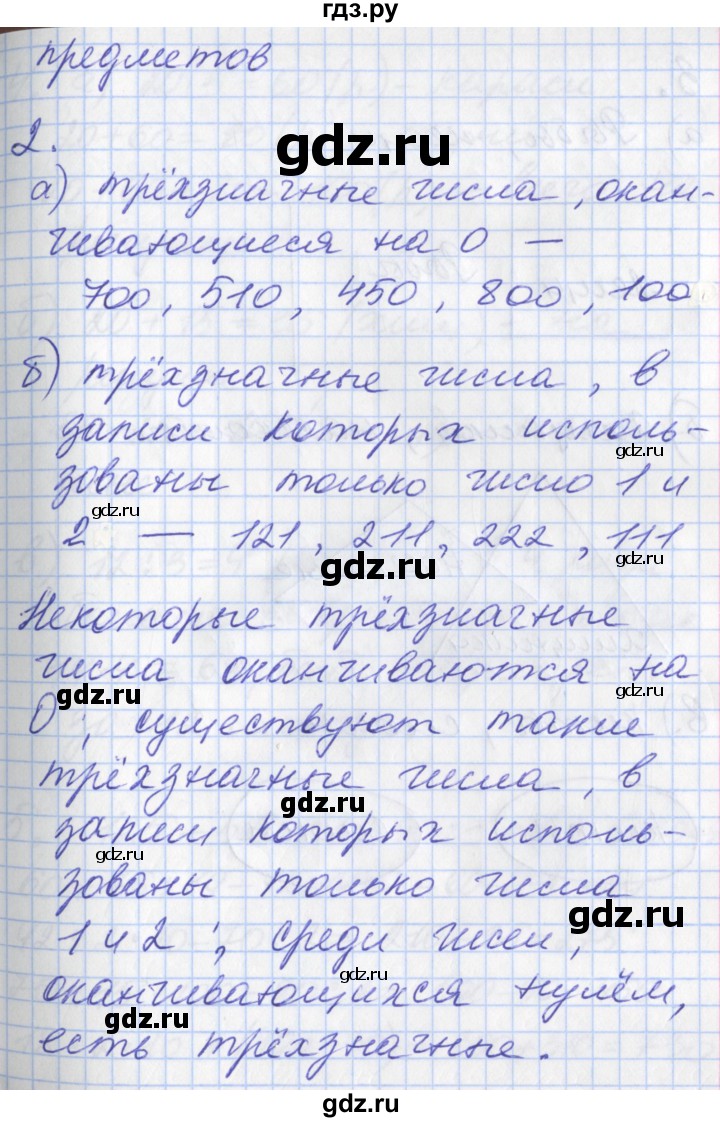 гдз.ру
предметов
gdz.ru
2.
а) трёхзначные числа, окан-
чивающиеся на 0 —
700, 510, 450, 800, 100
gdz.ru
б) трёхзначные числа, в
записи которых исполь-
gdz.ru
зованы только число 1 и
gdz.ru
2 — 121, 211, 222, 111
gdz.ru
gdz.ru
Некоторые трёхзначные
числа оканчиваются на
gdz.ru
gdz.ru
0; существуют такие
трёхзначные числа, в
gdz.ru
записи которых исполь-
gdz.ru
зованы только числа
gdz.ru
1 и 2; среди чисел,
gdz.ru
оканчивающихся нулём,
gdz.ru
есть трёхзначные.
gdz.ru
gdz.ru